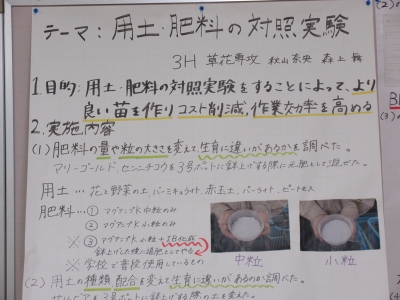 テーマ：用土・肥料の対照実験
3H 草花専攻 秋山奈央 森上
1.目的：用土・肥料の対照実験をすることによって、より
良い苗を作りコスト削減、作業効率を高める
2.実施内容
(1)肥料の量や粒の大きさを変えて生育に違いがあるかを調べた。
マリーゴールド センニチコウを3号ポットに鉢上げする際に元肥として混ぜた。
用土…花と野菜の土 バーミキュライト、赤玉土、パーライト、ピートモス
肥料…① マグァンプK 中粒のみ
② マグァンプK 小粒のみ
※③ マグァンプK 小粒+IB化成
鉢上げした後に追肥としてやる
※学校で普段使用しているもの
中粒
小粒
(2)用土の種類、配合を変えて生育に違いがあるのか調べた。
を3号ポットに鉢上げする際の土を変えた